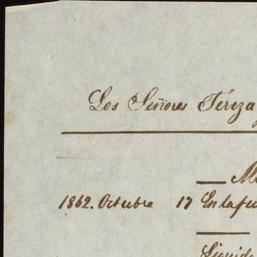 Los Señores Téreza
— M
1862. Octubre 17 En la fe